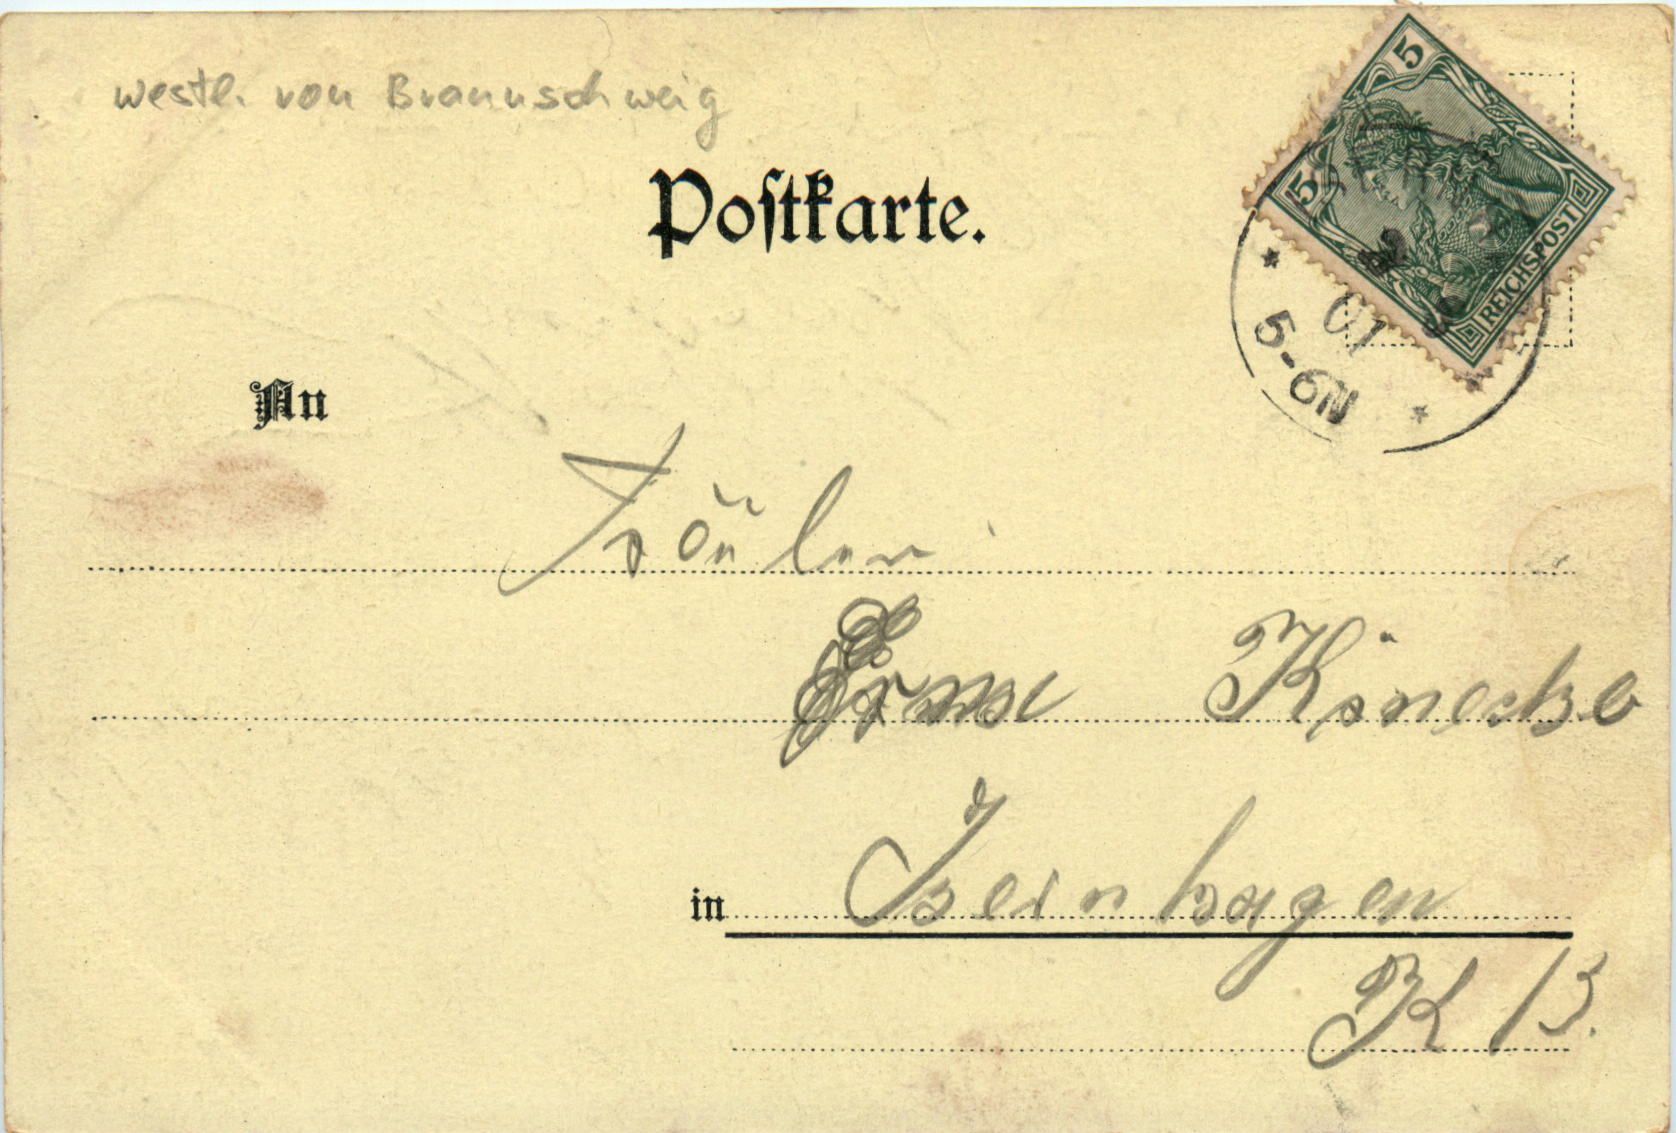 westl. von Braunschweig
Postkarte.
5
5
REICHSPOST
01
5-6N
An
Fräulein
Könecke
in Isernhagen
K B.